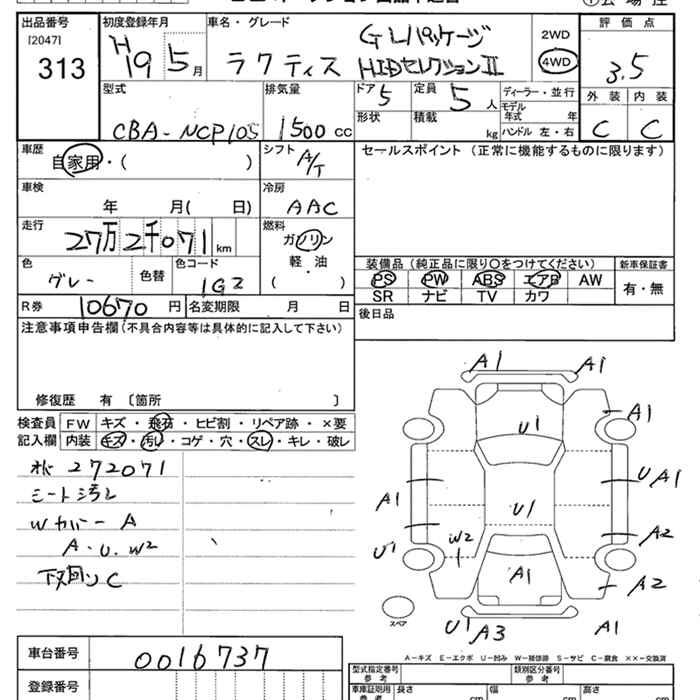 出品番号
[2047]
313
初度登録年月
H19 5月
車名・グレード
ラクティス
G Lパッケージ
HIDセレクションⅡ
2WD
4WD
評価点
3.5
外装 内装
C C
型式
CBA-NCP105
排気量
1500 cc
ドア
5
定員
5人
ディーラー・並行
モデル年式 年
形状
積載
kg
ハンドル 左・右
車歴
自家用・( )
シフト
A/T
セールスポイント (正常に機能するものに限ります)
車検
年 月( 日)
冷房
AAC
走行
27万2千071km
燃料
ガソリン
軽・油
( )
色
グレー
色替
色コード
1G2
装備品(純正品に限り○をつけてください)
新車保証書
PS PW ABS エアB AW
有・無
SR ナビ TV カワ
R券 10670円
名変期限 月 日
後日品
注意事項申告欄(不具合内容等は具体的に記入して下さい)
修復歴 有 〔箇所 〕
検査員
記入欄
FW キズ・飛石・ヒビ割・リペア跡・×要
内装 キズ・汚レ・コゲ・穴・スレ・キレ・破レ
272071
シート汚レ
Wカバー A
A・U・W2
下廻りC
A1 A1
A1
U1
A1
U A1
U1
W2
A2
U1
A1
A2
スペア
U1 A3
A1
車台番号
0016737
A-キズ E-エクボ U-凹み W-補修跡 S-サビ C-腐食 ××-交換済
登録番号
型式指定番号
参考
類別区分番号
参考
車庫証明用
参考
長さ cm
幅 cm
高さ cm